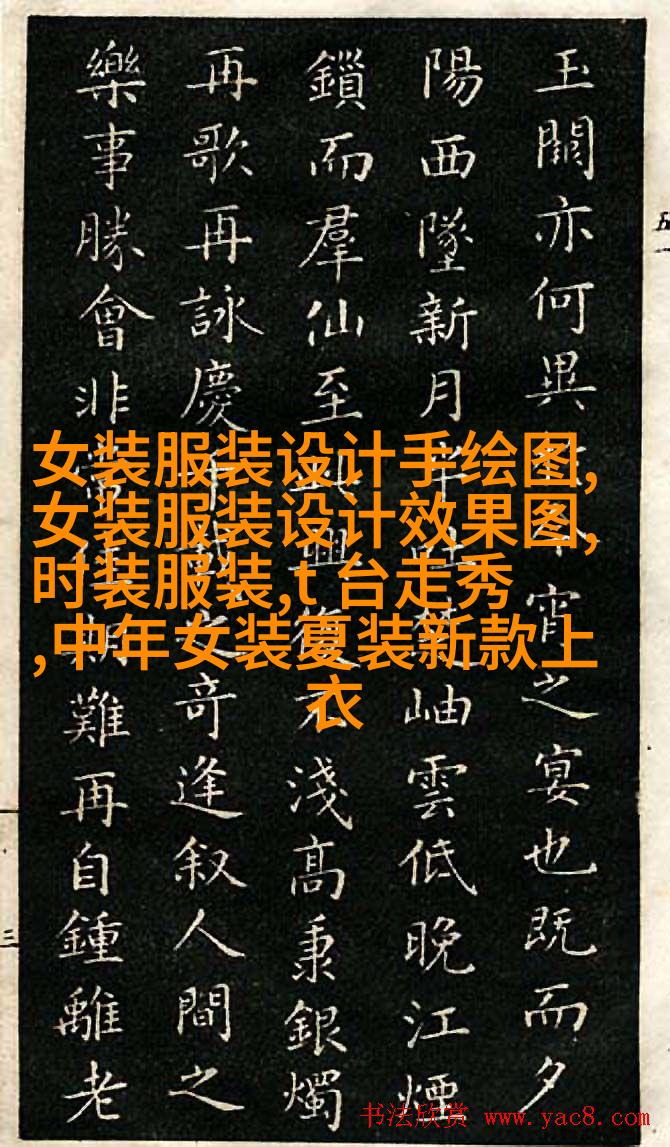 玉闕亦何異今宵之宴也既而夕
陽西墜新月半吐楚岫雲低晚江煙
鎖而羣仙至興復不淺高秉銀燭
再歌再詠慶千載之奇逢叙人間之
樂事勝會非常佳期難再自鍾離老
女装服装设计手绘图,
女装服装设计效果图,
时装服装,t 台走秀
,中年女装夏装新款上
衣
五
三
书法欣赏 www.yac8.com